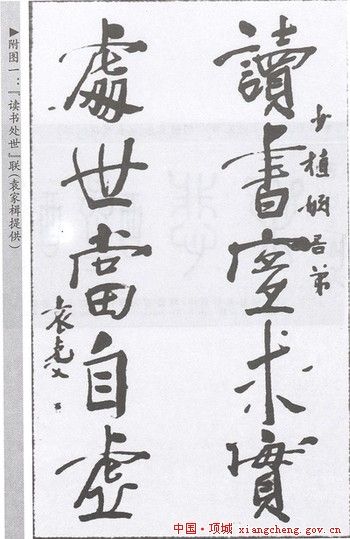 讀書求實
少植姻吾弟
處世當自虛
袁克文
▶附图一：『读书处世』联（袁家楫提供）
中国·项城 xiangcheng.gov.cn